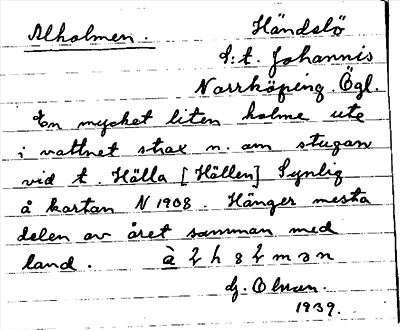 Alholmen.
Händelö
S:t. Johannis
Norrköping. Ögl.
En mycket liten holme ute
i vattnet strax n. om stugan
vid t. Hälla [Hällen] Synlig
å kartan N 1908. Hänger mesta
delen av året samman med
land.
G. Olson.
1939.